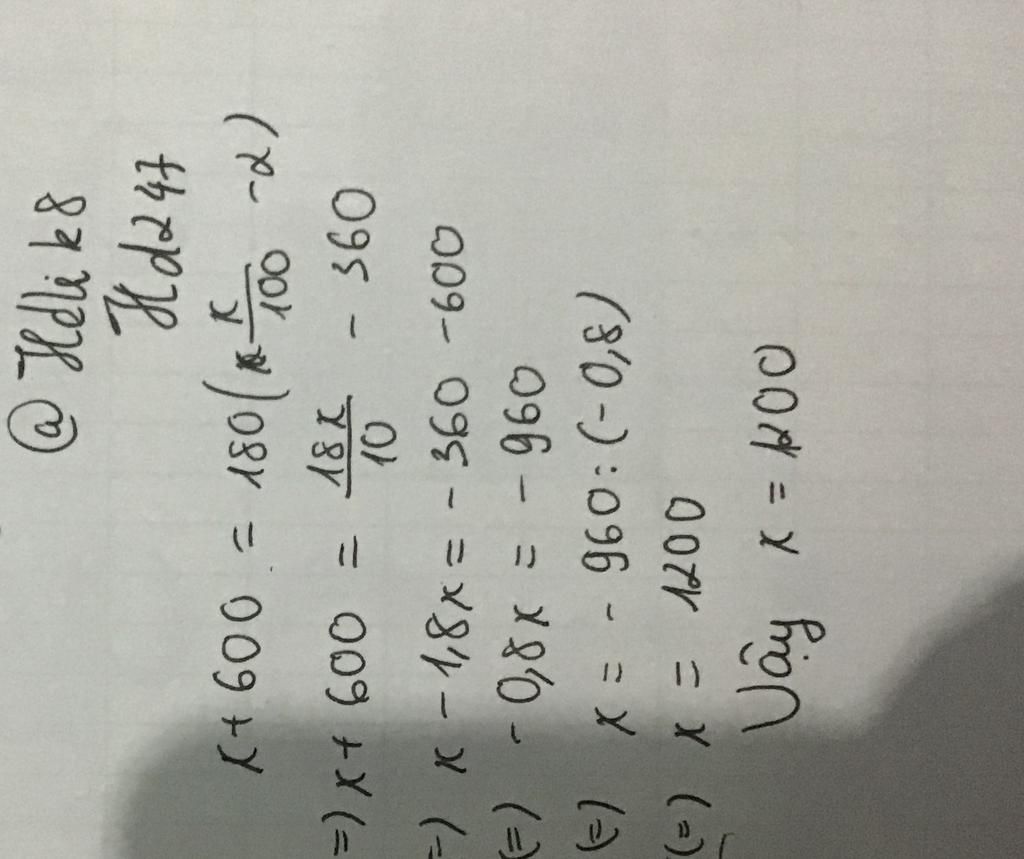 @ Hdlik8
Hd247
x + 600 = 180(x/100 - 2)
=) x + 600 = 18x/10 - 360
=) x - 1,8x = - 360 - 600
(=) - 0,8x = - 960
(=) x = - 960 : (- 0,8)
(=) x = 1200
Vậy x = 1200